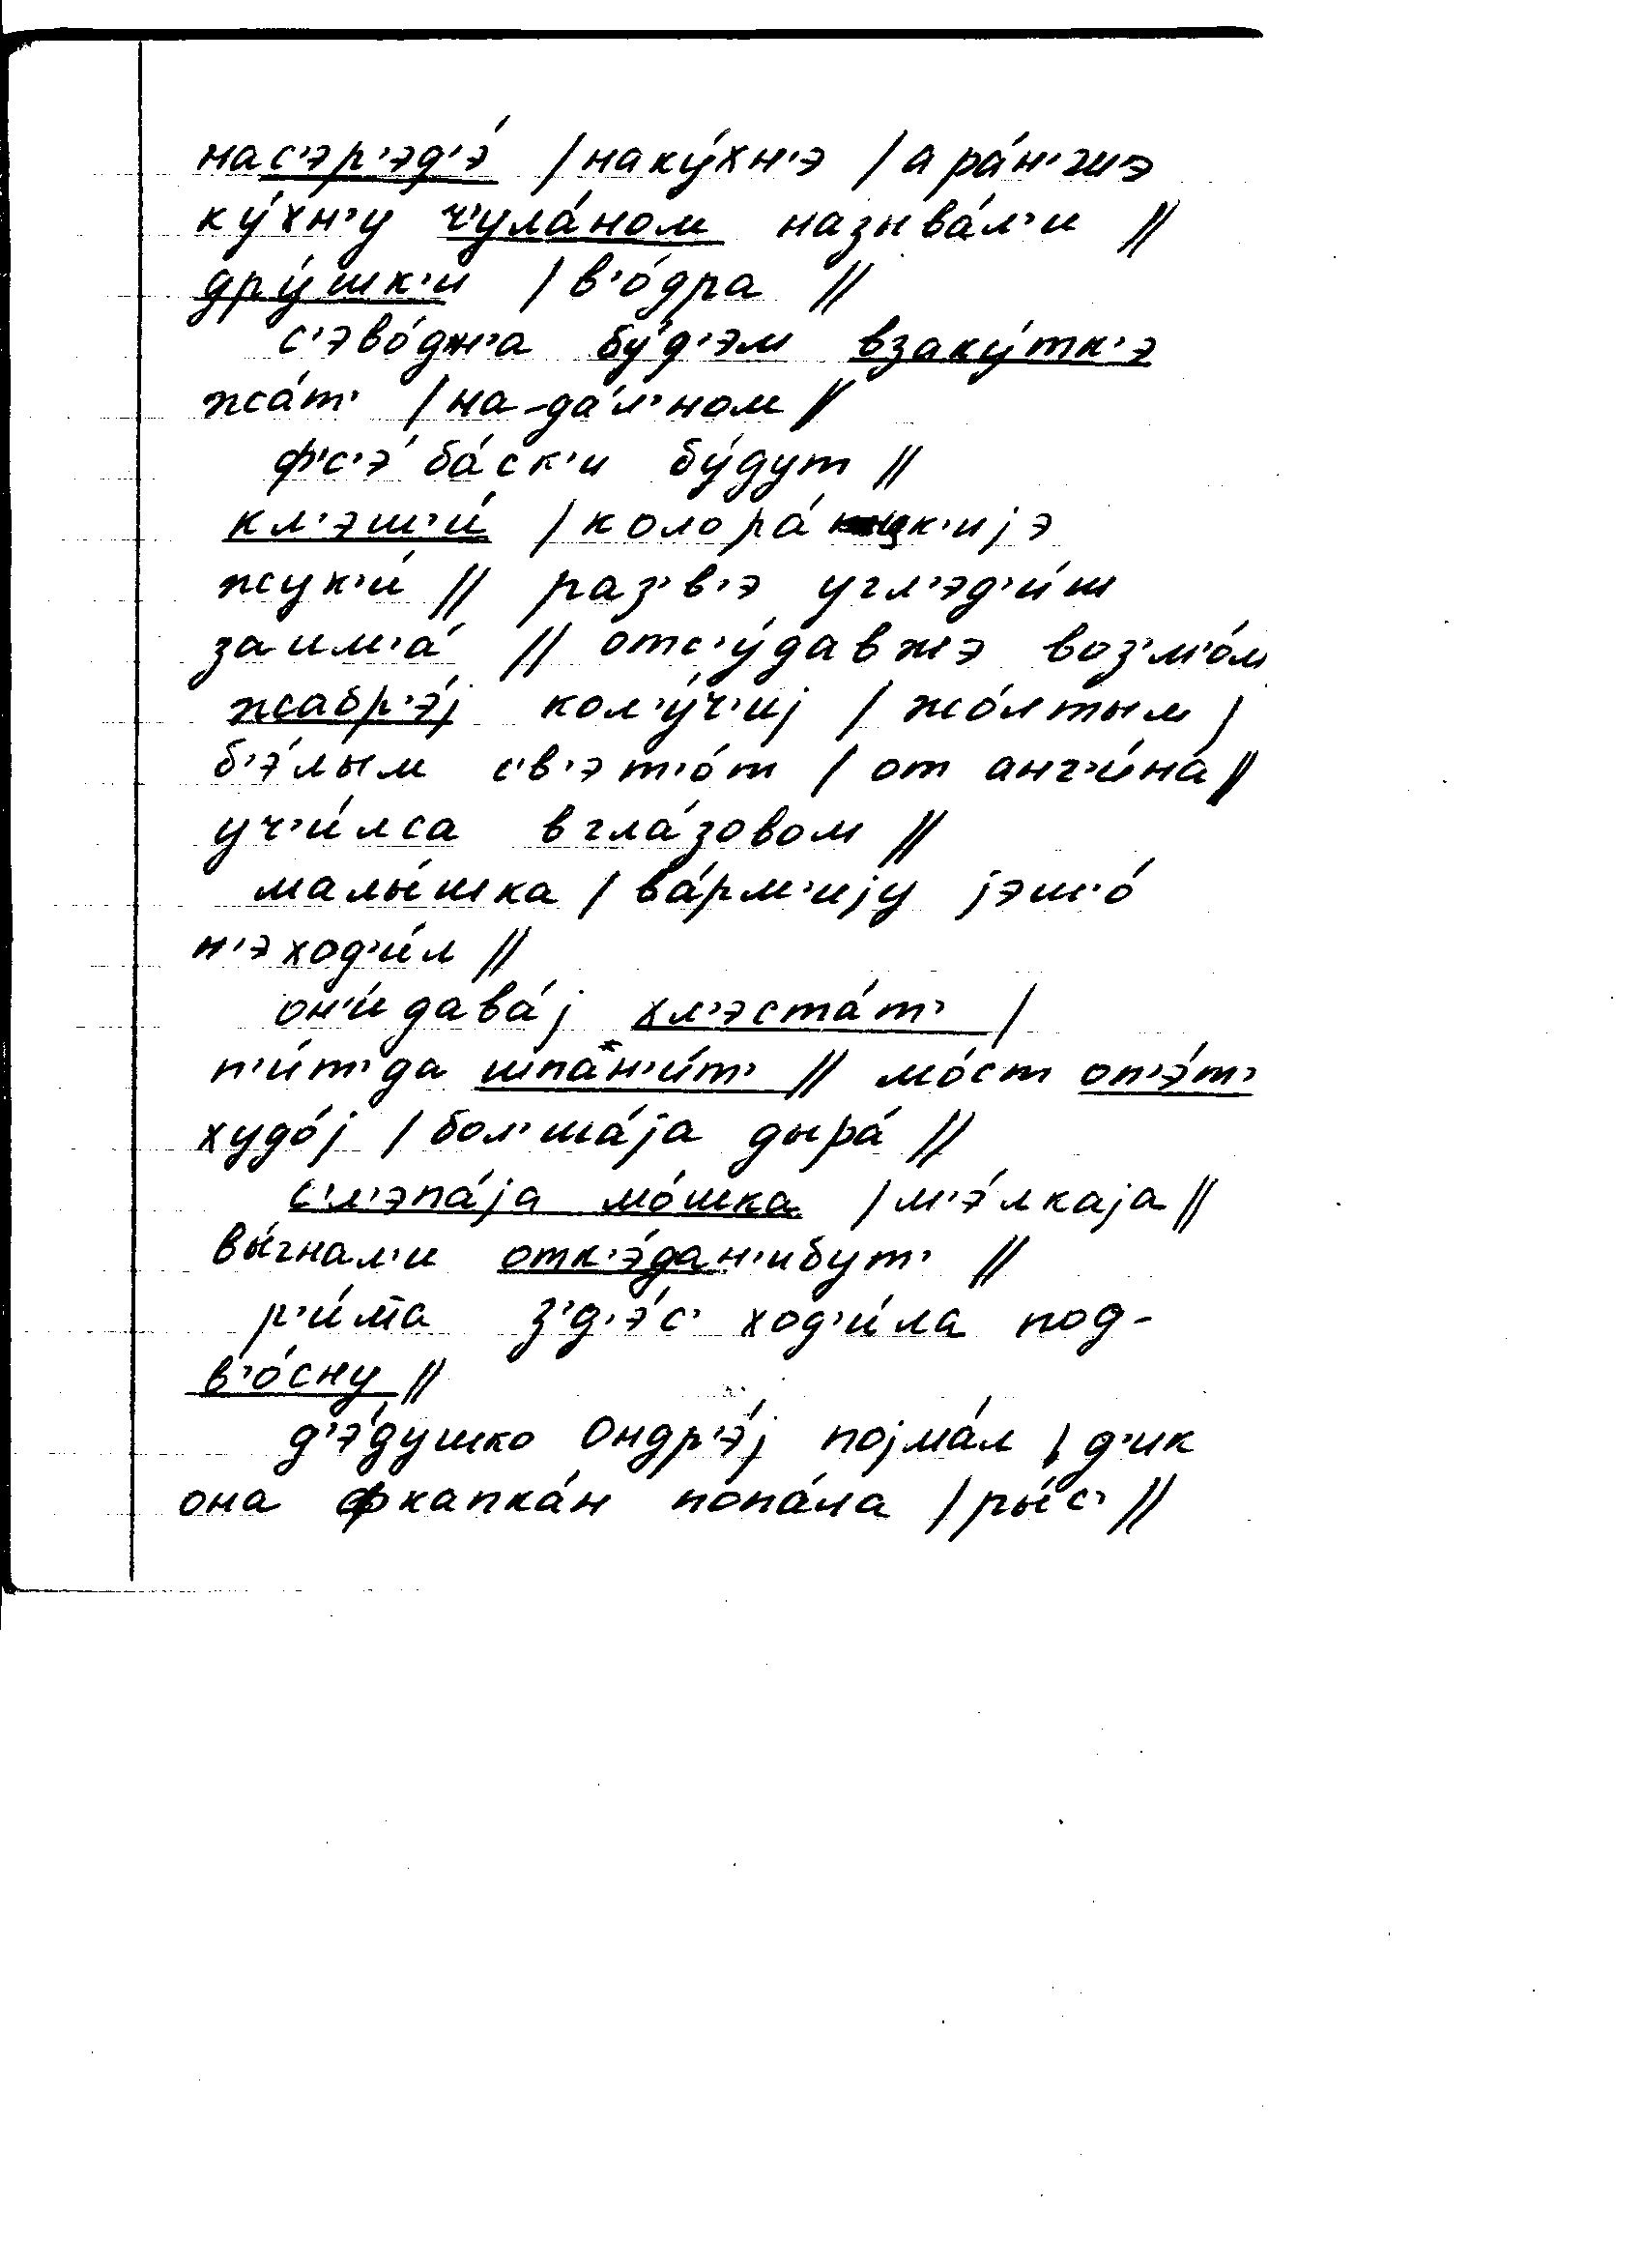 нас'э́р'эд'э́ | наку́хн'э | а ра́н'шэ
ку́хн'у ч'ула́ном называ́л'и ||
дру́шк'и | в'о́дра ||
с'эво́дн'а бу́д'эм взаку́тк'э
жа́т' | на-да́л'ном ||
ф'с'э́ ба́ск'и бу́дут ||
кл'эш'и́ | колора́цк'иjэ
жук'и́ || раз'в'э угл'эд'и́ш
заим'а́ || отс'у́давжэ воз'м'о́м
жабр'э́j кол'у́ч'иj | жо́лтым |
б'э́лым с'в'эт'о́т | от анг'и́на́ ||
уч'и́лса вгла́зовом ||
малы́шка | ва́рм'иjу jэш'о́
н'эход'и́л ||
он'и́ дава́j хл'эста́т' |
п'и́т' да шпа*н'и́т' || мо́ст оп'э́т'
худо́j | бол'ша́jа дыра́ ||
с'л'эпа́jа мо́шка | м'э́лкаjа ||
вы́гнал'и отк'э́дан'ибут' ||
р'и́ма з'д'э́с' ход'и́ла под-
в'о́сну ||
д'э́душко Ондр'э́j поjма́л | д'ик
она фкапка́н попа́ла | ры́с' ||